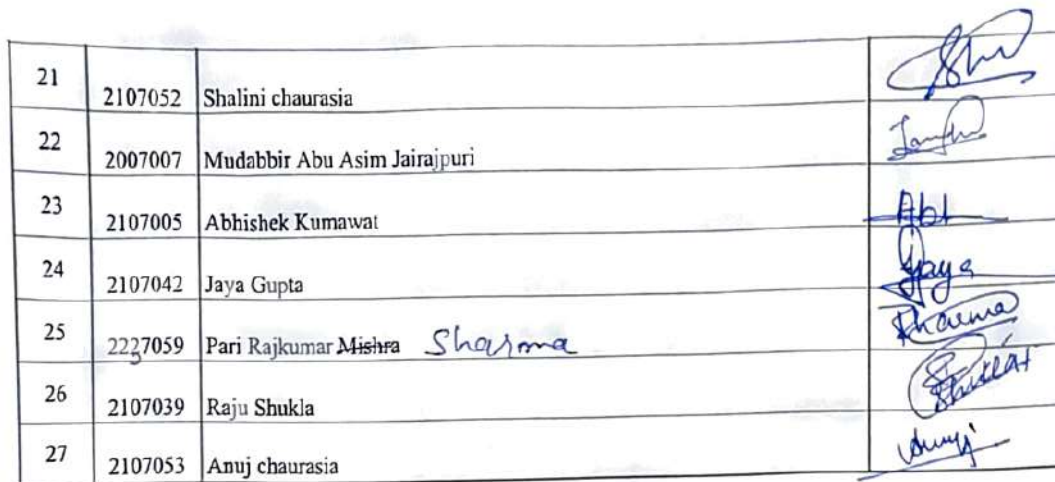 21 2107052 Shalini chaurasia
22 2007007 Mudabbir Abu Asim Jairajpuri
23 2107005 Abhishek Kumawat Abh
24 2107042 Jaya Gupta Jaya
25 2227059 Pari Rajkumar Mishra Sharma Sharma
26 2107039 Raju Shukla Shukla
27 2107053 Anuj chaurasia Anuj